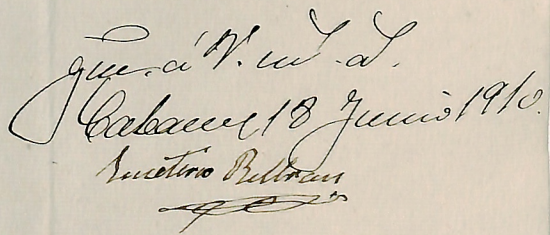 gue. á V. m.^s a.^s
Cabanes 18 Junio 1910.
Emeterio Beltran